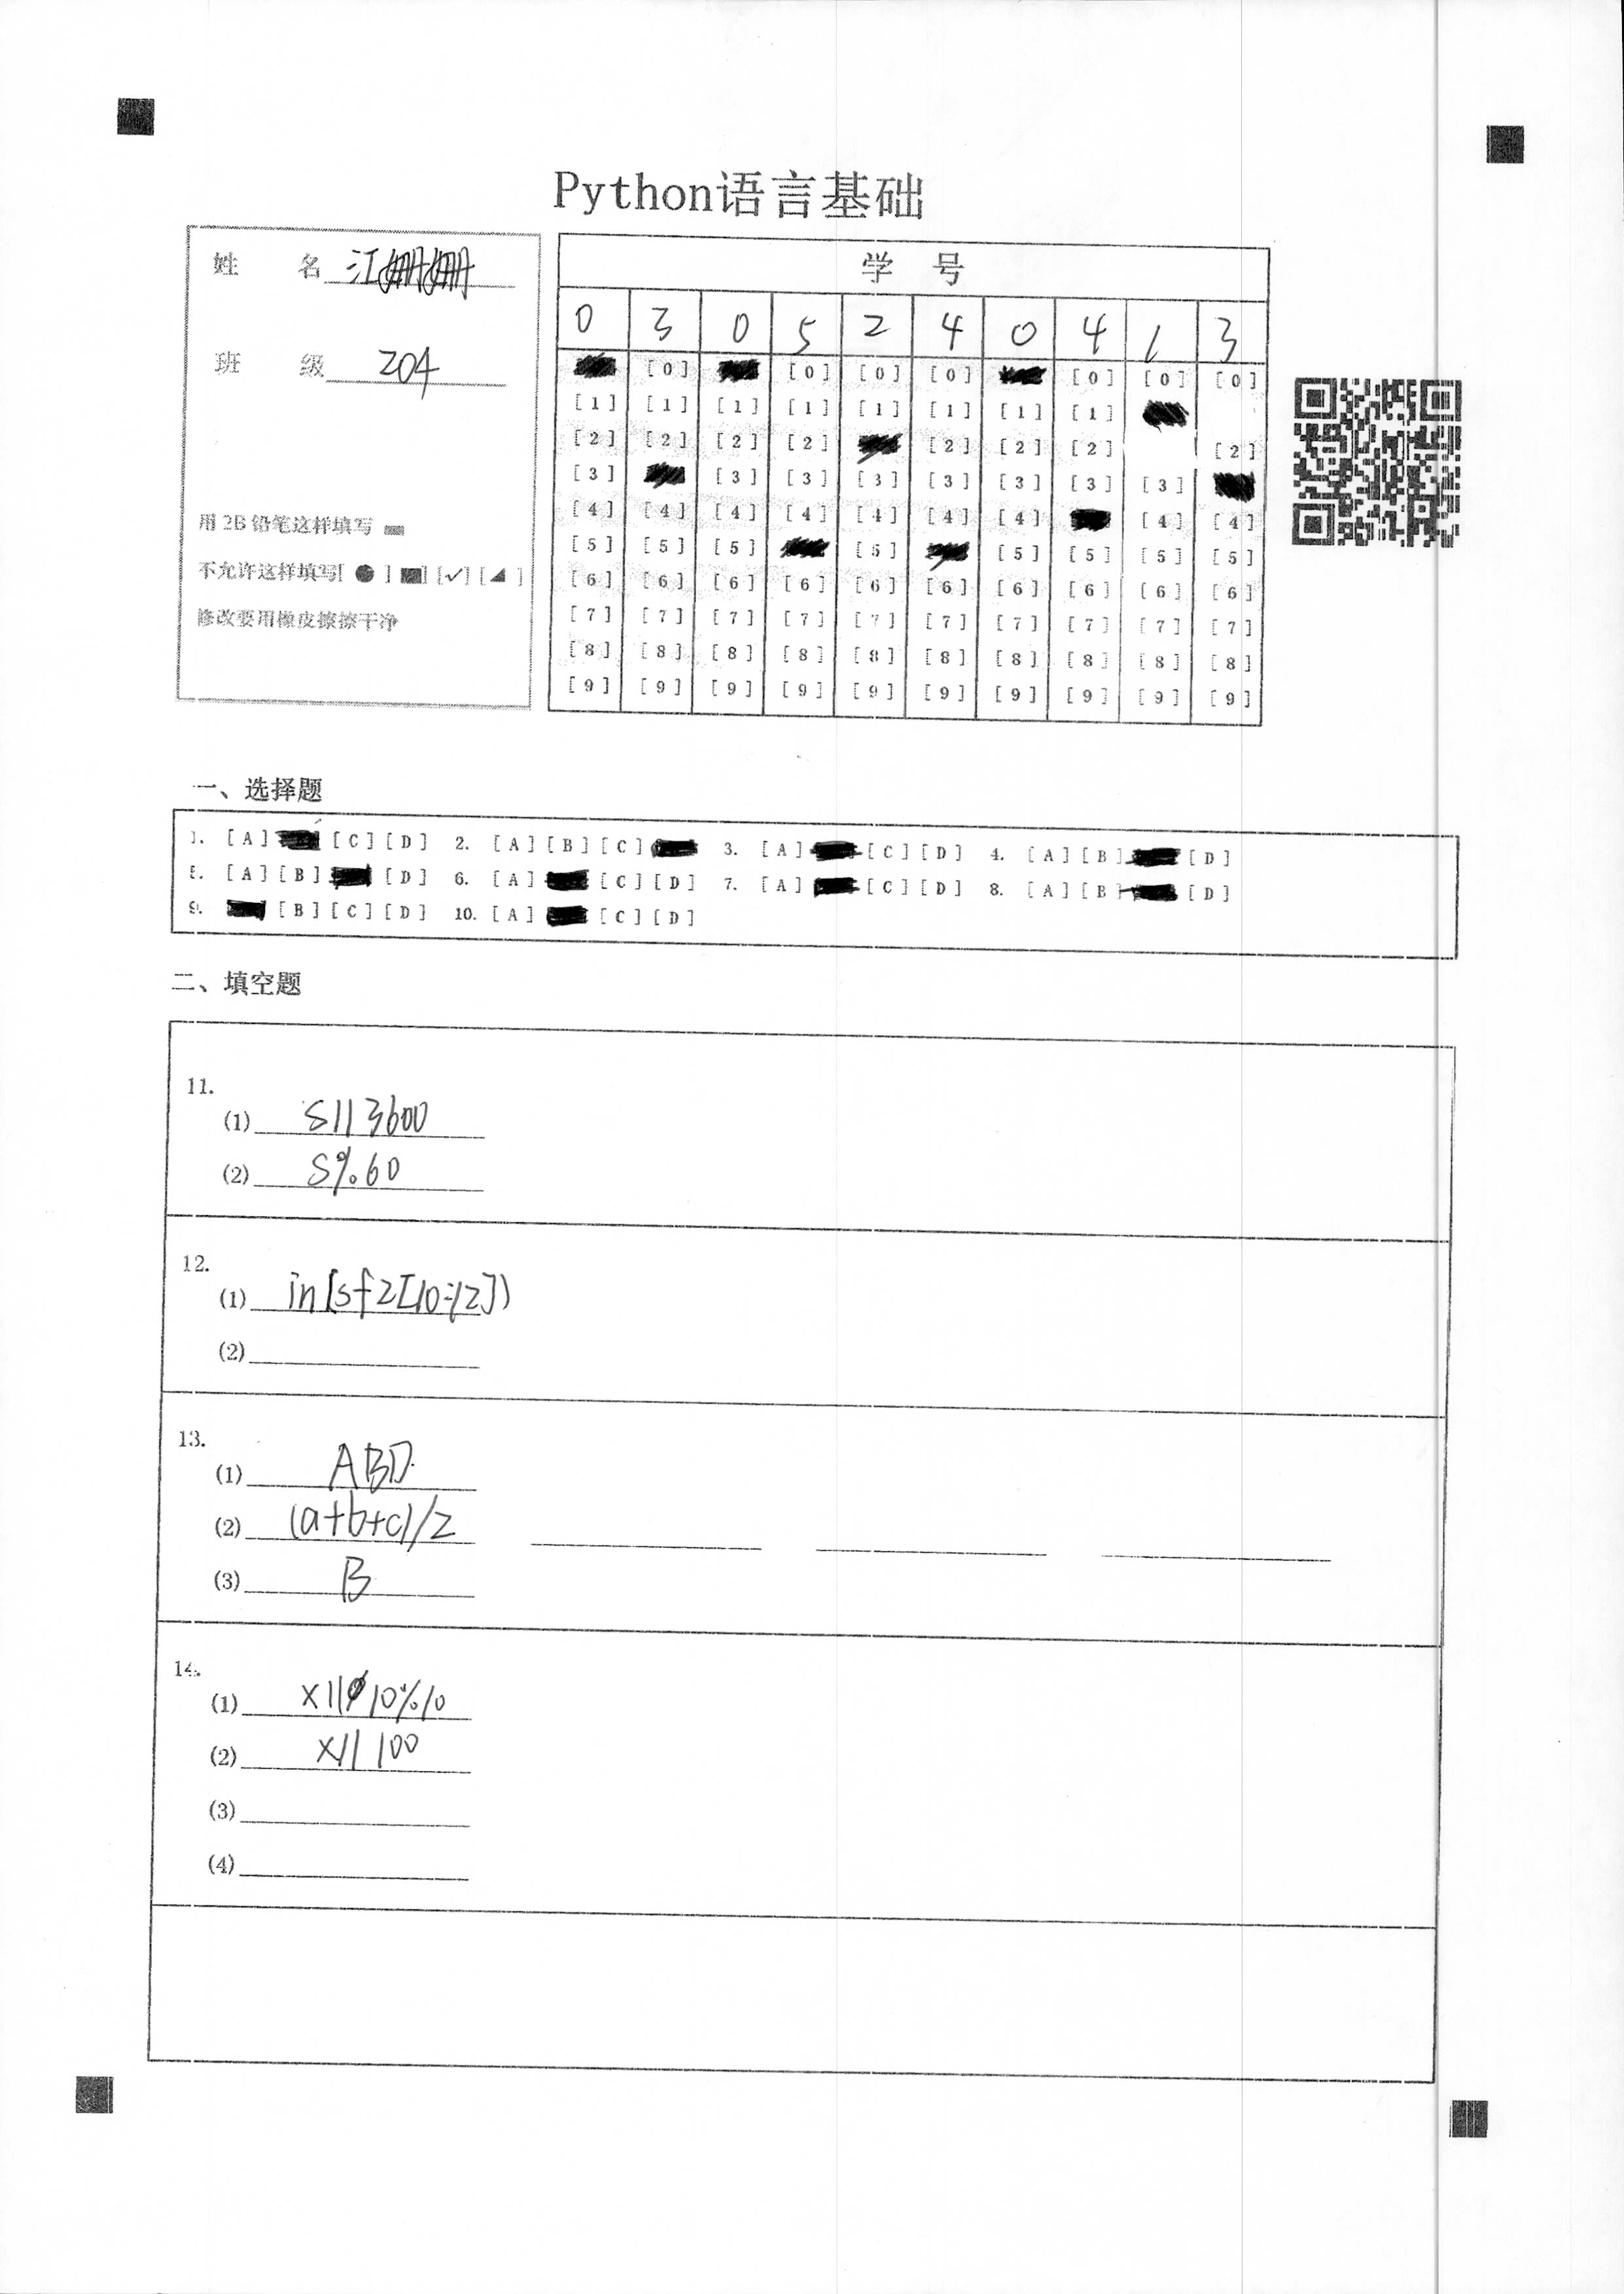 Python语言基础
姓 名 江姗姗
班 级 204
用 2B 铅笔这样填写
不允许这样填写[ ● ] [■] [✓] [◢ ]
修改要用橡皮擦擦干净
学 号
0 3 0 5 2 4 0 4 1 3
[0] [0] [0] [0] [0] [0] [0]
[1] [1] [1] [1] [1] [1] [1] [1]
[2] [2] [2] [2] [2] [2] [2] [2]
[3] [3] [3] [3] [3] [3] [3] [3]
[4] [4] [4] [4] [4] [4] [4] [4] [4]
[5] [5] [5] [5] [5] [5] [5] [5]
[6] [6] [6] [6] [6] [6] [6] [6] [6] [6]
[7] [7] [7] [7] [7] [7] [7] [7] [7] [7]
[8] [8] [8] [8] [8] [8] [8] [8] [8] [8]
[9] [9] [9] [9] [9] [9] [9] [9] [9] [9]
一、选择题
1. [A] [C] [D] 2. [A] [B] [C] 3. [A] [C] [D] 4. [A] [B] [D]
5. [A] [B] [D] 6. [A] [C] [D] 7. [A] [C] [D] 8. [A] [B] [D]
9. [B] [C] [D] 10. [A] [C] [D]
二、填空题
11.
(1) s//3600
(2) s%60
12.
(1) in(sfz[10:12])
(2)
13.
(1) ABD
(2) (a+b+c)/2
(3) B
14.
(1) x//10%10
(2) x//100
(3)
(4)